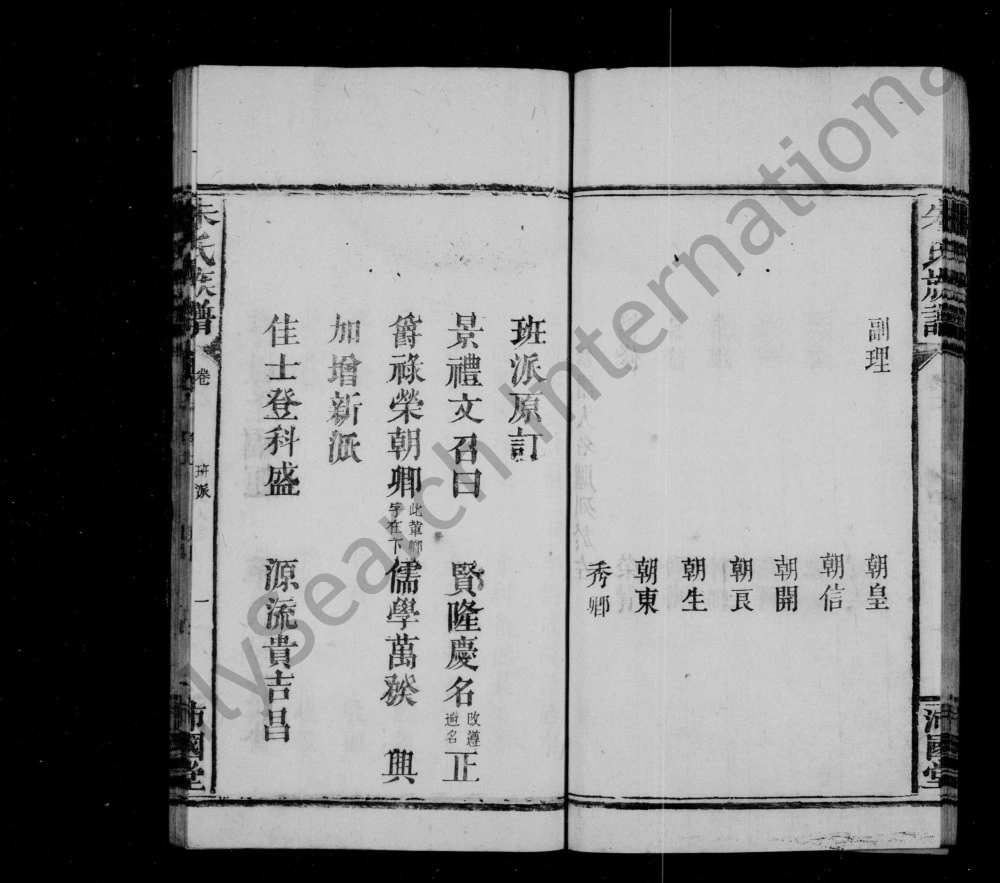 朱氏族譜
沛國堂
副理
朝皇
朝信
朝開
朝良
朝生
朝東
秀卿
班派原訂
景禮文召曰 賢隆慶名改遵造名正
爵祿榮朝卿此輩卿字在下儒學萬 興
加增新派
佳士登科盛 源流貴吉昌
朱氏族譜
卷
班派
一
沛國堂
FamilySearch International